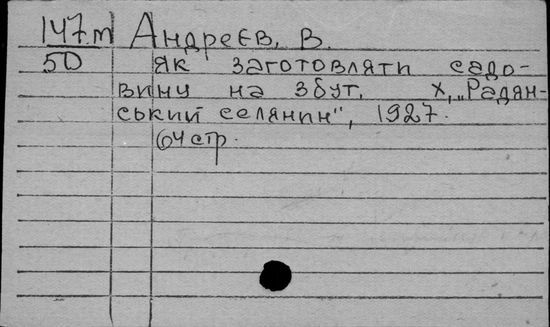 147.m Андреєв, В.
50 Як заготовляти садо-
вину на збут. Х, „Радян-
ський селянин", 1927.
64 стр.